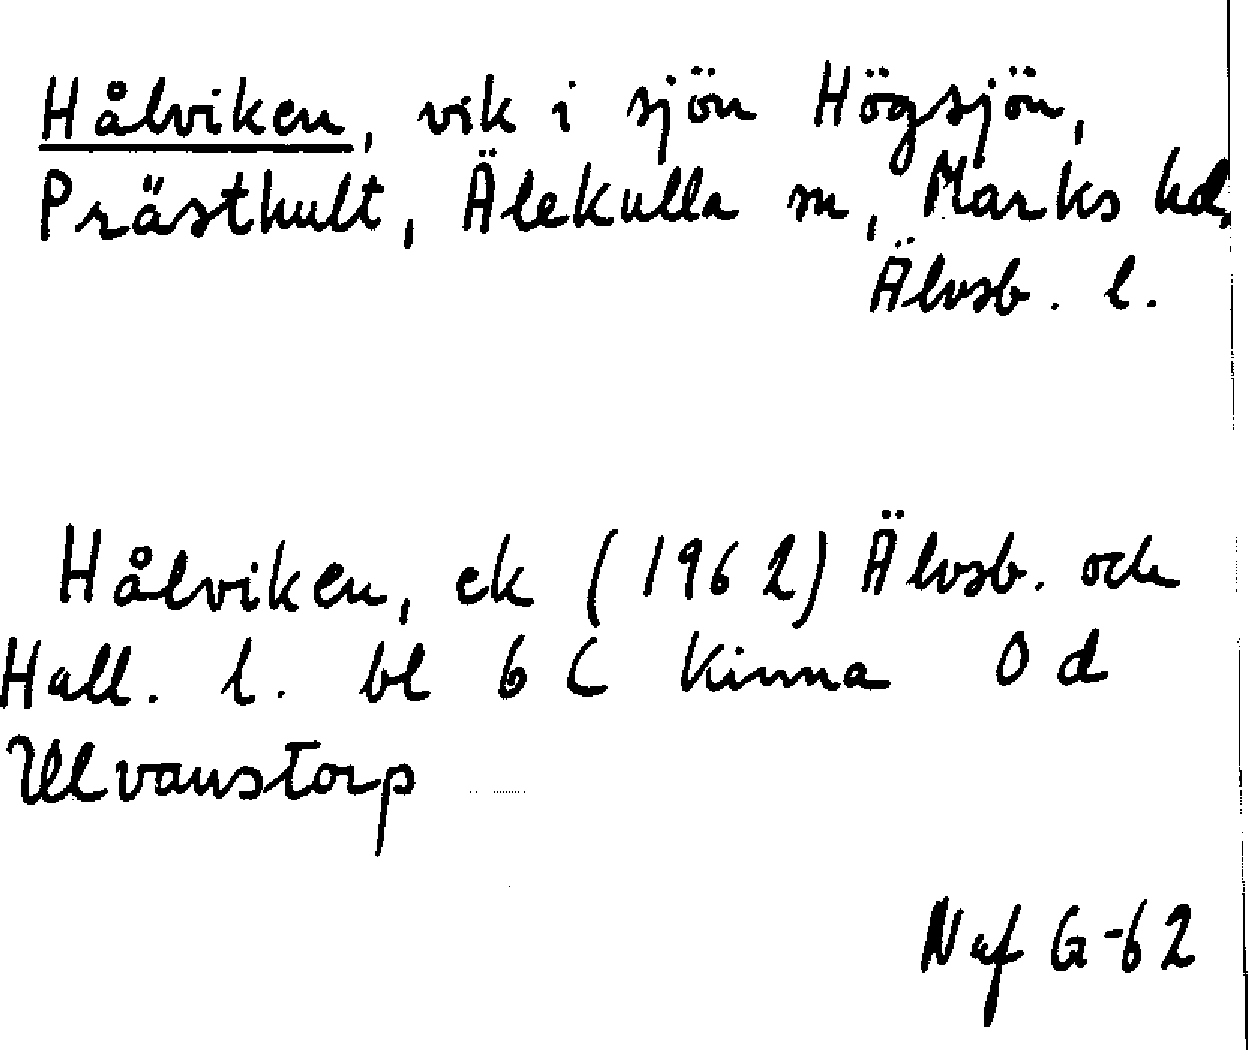 Hålviken, vik i sjön Högsjön,
Prästhult, Älekulla sn, Marks hd,
Älvsb. l.
Hålviken, ek (1962) Älvsb. och
Hall. l. bl 6 C Kinna 0 d
Ulvanstorp
Naf G-62